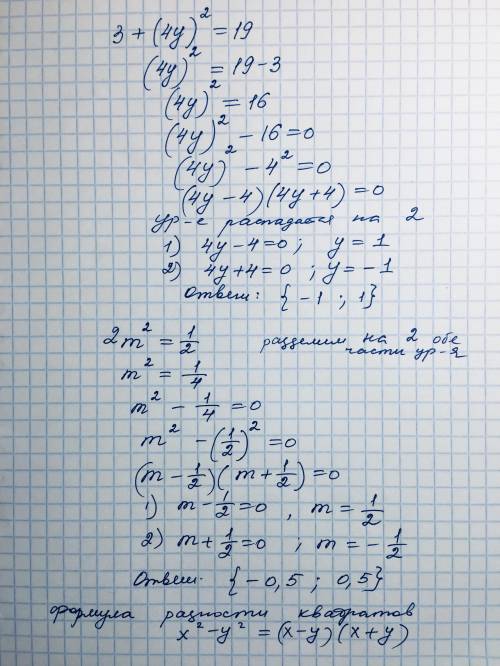 3 + (4y)² = 19
(4y)² = 19 - 3
(4y)² = 16
(4y)² - 16 = 0
(4y)² - 4² = 0
(4y - 4)(4y + 4) = 0
ур-е распадается на 2
1) 4y - 4 = 0 ; y = 1
2) 4y + 4 = 0 ; y = -1
Ответ: {-1 ; 1}
2m² = 1/2 разделим на 2 обе
части ур-я
m² = 1/4
m² - 1/4 = 0
m² - (1/2)² = 0
(m - 1/2)(m + 1/2) = 0
1) m - 1/2 = 0 , m = 1/2
2) m + 1/2 = 0 ; m = - 1/2
Ответ. {-0,5 ; 0,5}
формула разности квадратов
x² - y² = (x - y)(x + y)